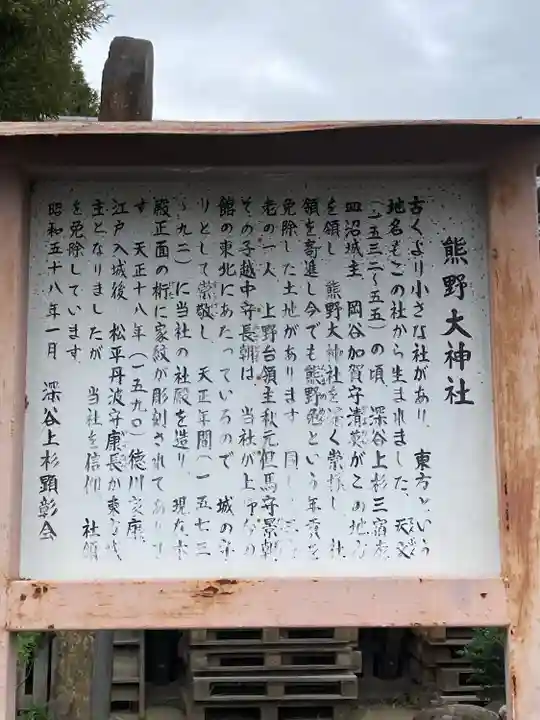 熊野大神社
古くより小さな社があり、東方という
地名もこの社から生まれました、天文
(一五三二～五五)の頃、深谷上杉三宿老
皿沼城主 岡谷加賀守清英がこの地方
を領し 熊野大神社を深く崇拝し 社
領を寄進し今でも熊野免という年貢を
免除した土地があります 同じ 三宿
老の一人 上野台領主秋元但馬守景朝
その子越中守長朝は 当社が上野台の
館の東北にあたっているので 城の守
りとして崇敬し 天正年間(一五七三
～九二)に当社の社殿を造り 現在本
殿正面の桁に家紋が彫刻されてありま
す 天正十八年(一五九〇)徳川家康
江戸入城後 松平丹波守康長が東方城
主となりましたが 当社を信仰 社領
を免除しています。
昭和五十八年一月 深谷上杉顕彰会